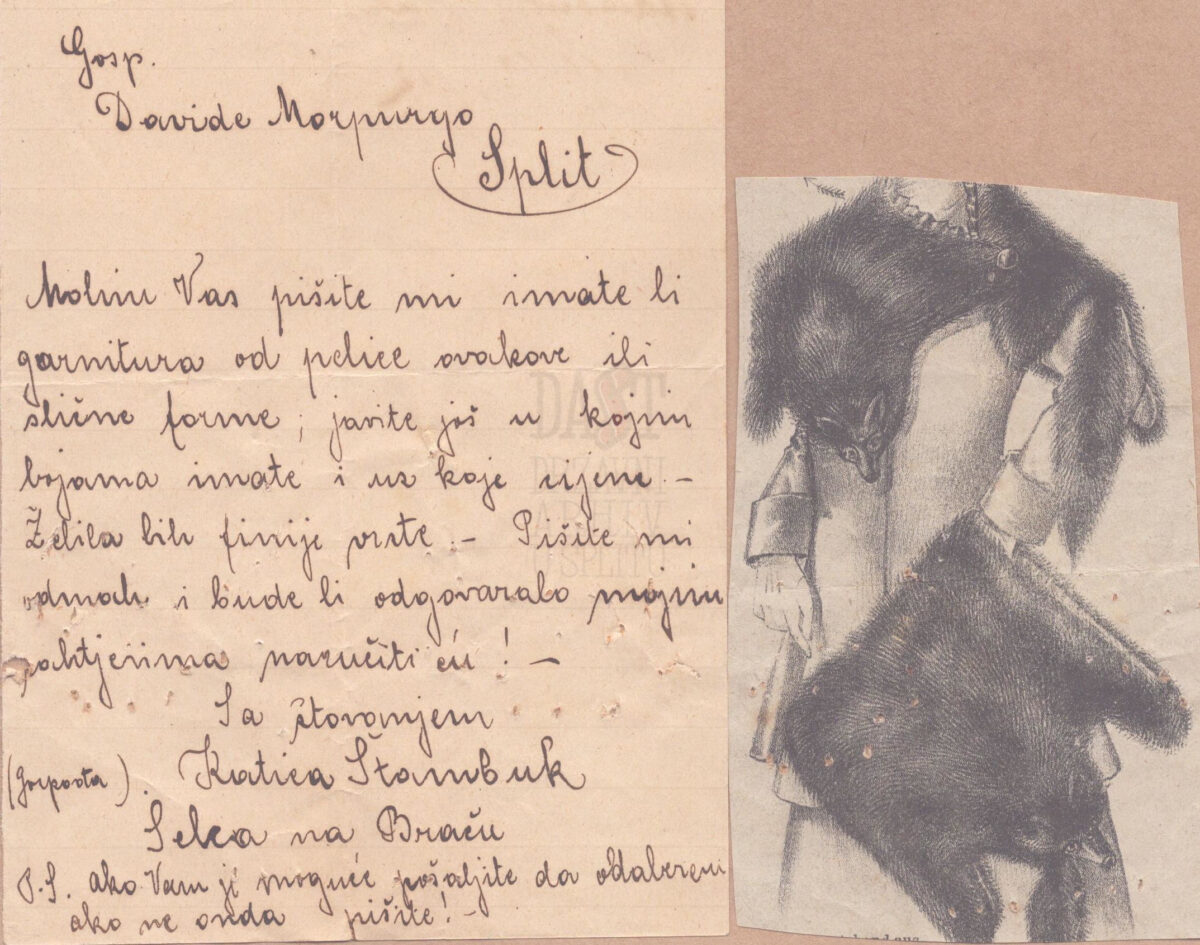 Gosp.
Davide Morpurgo
Split
Molim Vas pišite mi imate li
garnitura od pelice ovakove ili
slične forme, javite još u kojim
bojama imate i uz koje cijene. –
Želila bih finije vrste. – Pišite mi
odmah i bude li odgovaralo mojim
zahtjevima naručiti ću! –
Sa štovanjem
(Gospođa). Katica Štambuk
Selca na Braču
P.S. ako Vam je moguće pošaljite da odaberem
ako ne onda pišite! –
DAST
DRŽAVNI
ARHIV
U SPLITU